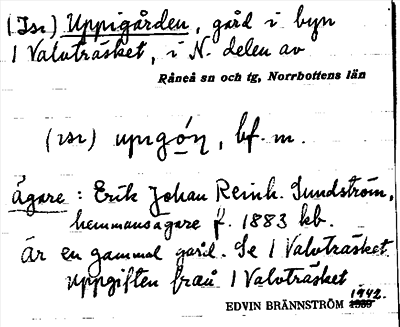 (Isr) Uppigården, gård i byn
1 Valvträsket, i N. delen av
Råneå sn och tg, Norrbottens län
(ısı) upıgo̱ŋ, bf. m.
ägare: Erik Johan Reinh. Sundström,
hemmansägare f. 1883 kb.
Är en gammal gård. Se 1 Valvträsket
uppgiften från 1 Valvträsket
1942.
EDVIN BRÄNNSTRÖM